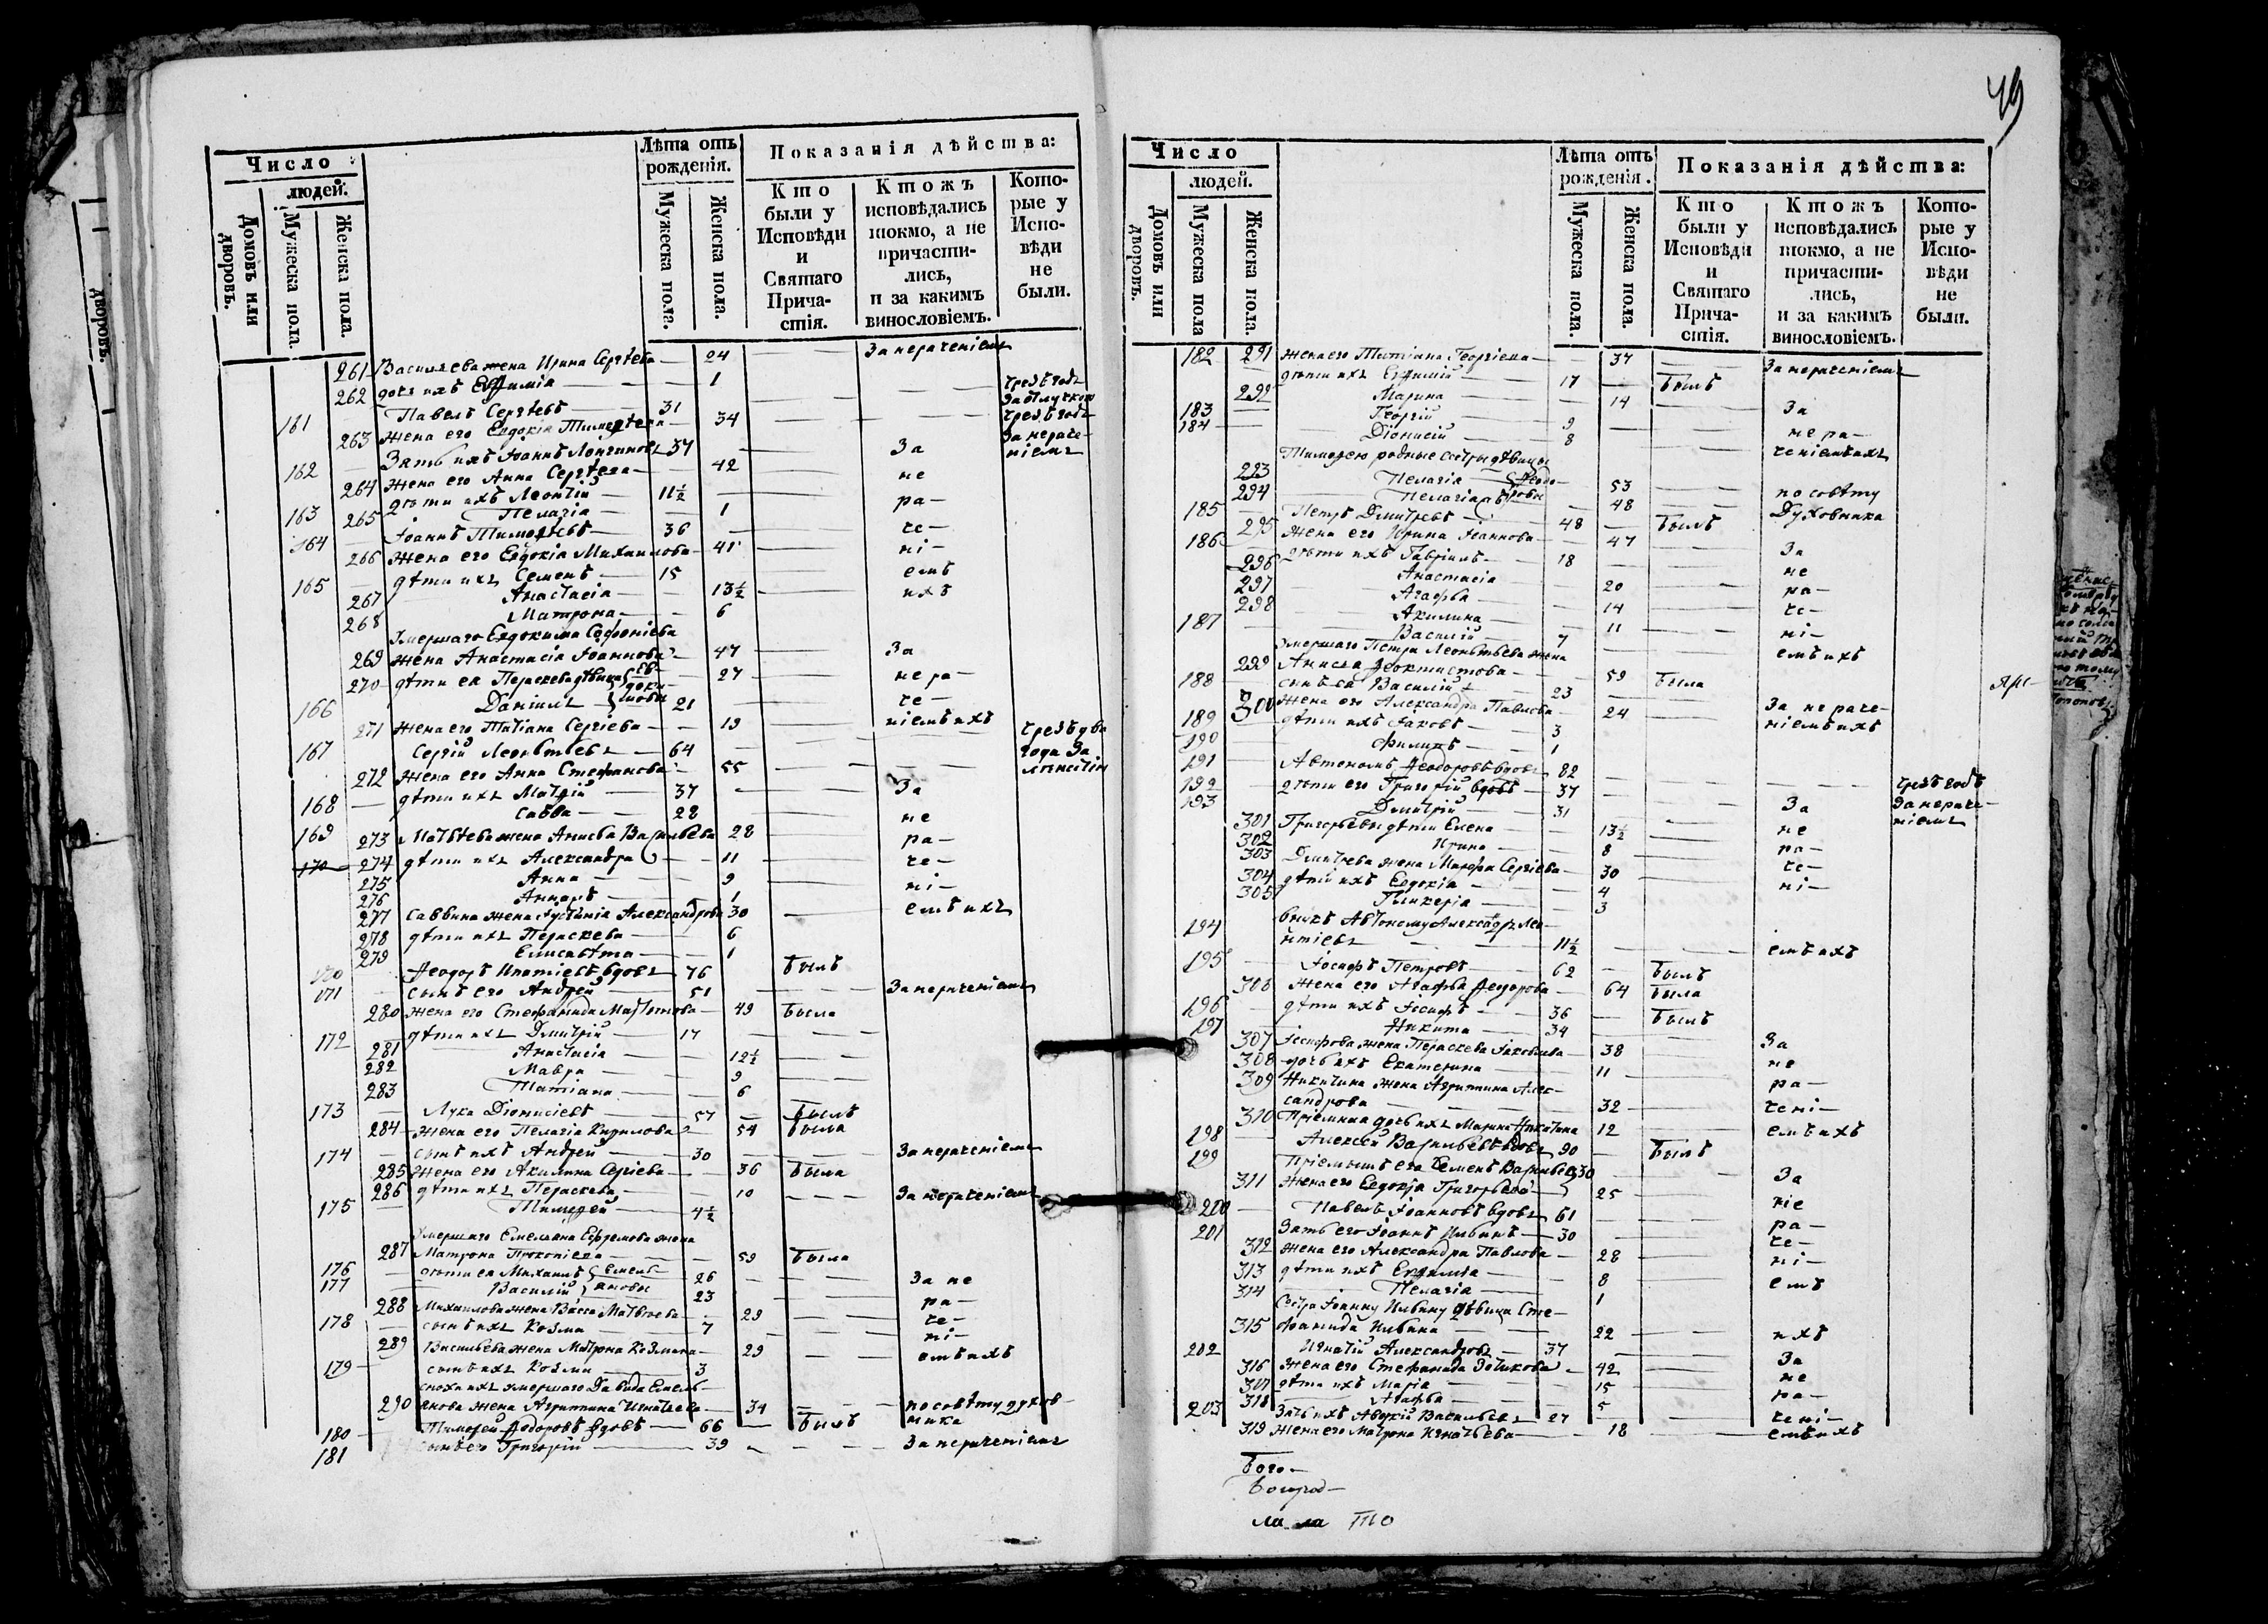 49
Число
людей.
Домовъ или дворовъ.
Мужеска пола.
Женска пола.
Лѣта отъ рожденія.
Мужеска пола.
Женска пола.
Показанія дѣйства:
Кто были у Исповѣди и Святаго Прича- стія.
Ктожъ исповѣдались токмо, а не причасти- лись, и за какимъ винословіемъ.
Кото- рые у Испо- вѣди не были.
261 Васильева жена Ирина Сергѣева — 24 За нерачениемъ
262 дочь ихъ Евфимія — 1
161 Павелъ Сергѣевъ — 31 чрезъ годъ за отлучкою
263 жена его Евдокія Тимоѳеева — 34 чрезъ годъ
162 Зять ихъ Іоаннъ Лонгиновъ 37 За нераче- ніемъ
264 жена его Анна Сергѣева — 42 За
163 дѣти ихъ Леонтій — 11½ не
265 Пелагія — 1 ра—
164 Іоаннъ Тимоѳеевъ — 36 че—
266 жена его Евдокія Михаилова — 41 ні—
165 дѣти ихъ Семенъ — 15 емъ
267 Анастасія — 13½ ихъ
268 Матрона — 6
Умершаго Евдокима Софоніева
269 жена Анастасія Іоаннова — 47 За
270 дѣти ея Пераскева дѣвица Ев- доки- мовы — 27 не ра—
166 Даніилъ 21 че—
271 жена его Татіана Сергіева — 19 ніемъ ихъ
167 Сергій Леонтьевъ — 64 чрезъ два года за
272 жена его Анна Стефанова — 55 лѣностію
168 дѣти ихъ Матѳій — 37 За
169 Савва — 28 не
273 Матвѣева жена Анисья Васильева 28 ра—
170 274 дѣти ихъ Александра — 11 че—
275 Анна — 9 ні—
276 1
277 Саввина жена Іустинія Александрова 30 емъ ихъ
278 дѣти ихъ Пераскева — 6
279 Елисавета — 1
170 Ѳеодоръ Ипатіевъ вдовъ 76 былъ
171 сынъ его Андрей — 51 За нерачениемъ
280 жена его Стефанида — 49 была
172 дѣти ихъ Дмитрій — 17
281 Анастасія — 12½
282 Мавра — 9
283 Татіана — 6
173 Лука Діонисіевъ — 57 былъ
284 жена его Пелагія Кирилова — 54 была
174 сынъ ихъ Андрей — 30 За нерачениемъ
285 жена его Акилина Сергіева — 36 была
286 дѣти ихъ Пераскева — 10 За нерачениемъ
175 Тимоѳей — 4½
Умершаго Емельяна Ефремова жена
287 Матрона Прокопіева — 59 была
176 дѣти ея Михаилъ Емель- яновы — 26 За не
177 Василій 23 ра—
288 Михаилова жена Васса Матвѣева — 29 че—
178 сынъ ихъ Козма — 7 ні—
289 Васильева жена Матрона Козмина — 29 емъ ихъ
179 сынъ ихъ Козма — 3
сноха ихъ умершаго Давида Емель-
290 янова жена Агриппина Игнатьева — 34 по совѣту духов- ника
180 Тимоѳей Ѳедоровъ вдовъ — 66 былъ
181 сынъ его Григорій — 39 За нерачениемъ
Число
людей.
Домовъ или дворовъ.
Мужеска пола
Женска пола.
Лѣта отъ рожденія.
Мужеска пола.
Женска пола.
Показанія дѣйства:
Кто были у Исповѣди и Святаго Прича- стія.
Ктожъ исповѣдались токмо, а не причасти- лись, и за какимъ винословіемъ.
Кото- рые у Испо- вѣди не были.
182 291 жена его Татіана Георгіева — 37 За нерачениемъ
дѣти ихъ Евфимій — 17 былъ
292 Марина — 14 За
183 Георгій — 9 не ра—
184 Діонисій — 8 ченіемъ ихъ
Тимоѳею родные сестры дѣвицы
293 Пелагія Ѳеодо- ровы — 53 по совѣту
294 Пелагія — 48 Духовника
185 Петръ Дмитревъ — 48 былъ
295 жена его Ирина Іоаннова — 47 За
186 дѣти ихъ Гавріилъ — 18 не
296 Анастасія — 20 ра—
297 Агафья — 14 че—
298 Акилина — 11 ні—
187 Василій — 7 емъ ихъ
Умершаго Петра Леонтьева жена
299 Анисья Ѳеоктистова — 59 была
188 сынъ ея Василій — 23
300 жена его Александра Павлова — 24 За нераче-
189 дѣти ихъ Іаковъ — 3 ніемъ ихъ
190 Филипъ — 1
191 Автономъ Ѳеодоровъ вдовъ 82 чрезъ годъ
192 дѣти его Григорій вдовъ — 37 За нераче-
193 Дмитрій — 31 За ніемъ
301 Григорьевы дѣти Елена — 13½ не
302 Ирина — 8 ра—
303 Дмитрева жена Марфа Сергіева — 30 че—
304 дѣти ихъ Евдокія — 4 ні—
305 Гликерія — 3
194 внукъ Автоному Александръ Лео-
нтіевъ 11½ емъ ихъ
195 Іосифъ Петровъ — 62 былъ
306 жена его Агафья Ѳеодорова — 64 была
196 дѣти ихъ Іосифъ — 36 былъ
197 Никита — 34
307 Іосифова жена Пераскева Іаковлева — 38 За
308 дочь ихъ Екатерина — 11 не
309 Никитина жена Агриппина Алек- ра—
сандрова — 32 чені—
310 Пріемная дочь ихъ Марина Никитина 12 емъ ихъ
198 Алексей Васильевъ вдовъ 90 былъ
199 Пріемышъ его Семенъ Васильевъ 30 За
311 жена его Евдокія Григорьева — 25 не
200 Павелъ Іоанновъ вдовъ 61 ра—
201 Зять его Іоаннъ Ильинъ — 30 че—
312 жена его Александра Павлова — 28 ні—
313 дѣти ихъ Евфимія — 8 емъ
314 Пелагія — 1
Сестра Іоанну Ильину дѣвица Сте-
315 фанида Ильина — 22 ихъ
202 Игнатій Александровъ — 37 За
316 жена его Стефанида Зотикова — 42 не
317 дѣти ихъ Марія — 15 ра—
318 Агафья — 5
203 Зять ихъ Васильевъ 27 чені—
319 жена его Матрона Игнатьева — 18 емъ ихъ
Бого—
Богород—